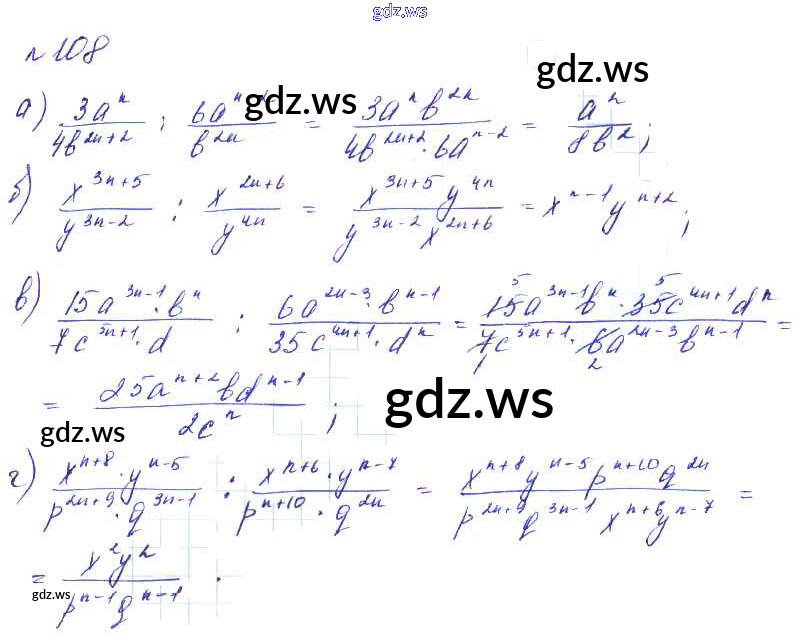 gdz.ws
№108
а) 3aⁿ/4b²ⁿ⁺² : 6aⁿ⁻²/b²ⁿ = 3aⁿb²ⁿ/4b²ⁿ⁺²·6aⁿ⁻² = a²/8b²;
б) x³ⁿ⁺⁵/y³ⁿ⁻² : x²ⁿ⁺⁶/y⁴ⁿ = x³ⁿ⁺⁵y⁴ⁿ/y³ⁿ⁻²x²ⁿ⁺⁶ = xⁿ⁻¹yⁿ⁺²;
в) 15a³ⁿ⁻¹·bⁿ/7c⁵ⁿ⁺¹·d : 6a²ⁿ⁻³·bⁿ⁻¹/35c⁴ⁿ⁺¹·dⁿ = 15a³ⁿ⁻¹bⁿ·35c⁴ⁿ⁺¹dⁿ/7c⁵ⁿ⁺¹·6a²ⁿ⁻³bⁿ⁻¹ =
= 25aⁿ⁺²bdⁿ⁻¹/2cⁿ;
г) xⁿ⁺⁸·yⁿ⁻⁵/p²ⁿ⁺⁹·q³ⁿ⁻¹ : xⁿ⁺⁶·yⁿ⁻⁷/pⁿ⁺¹⁰·q²ⁿ = xⁿ⁺⁸yⁿ⁻⁵pⁿ⁺¹⁰q²ⁿ/p²ⁿ⁺⁹q³ⁿ⁻¹xⁿ⁺⁶yⁿ⁻⁷ =
= x²y²/pⁿ⁻¹qⁿ⁻¹.
gdz.ws
gdz.ws
gdz.ws
gdz.ws
gdz.ws